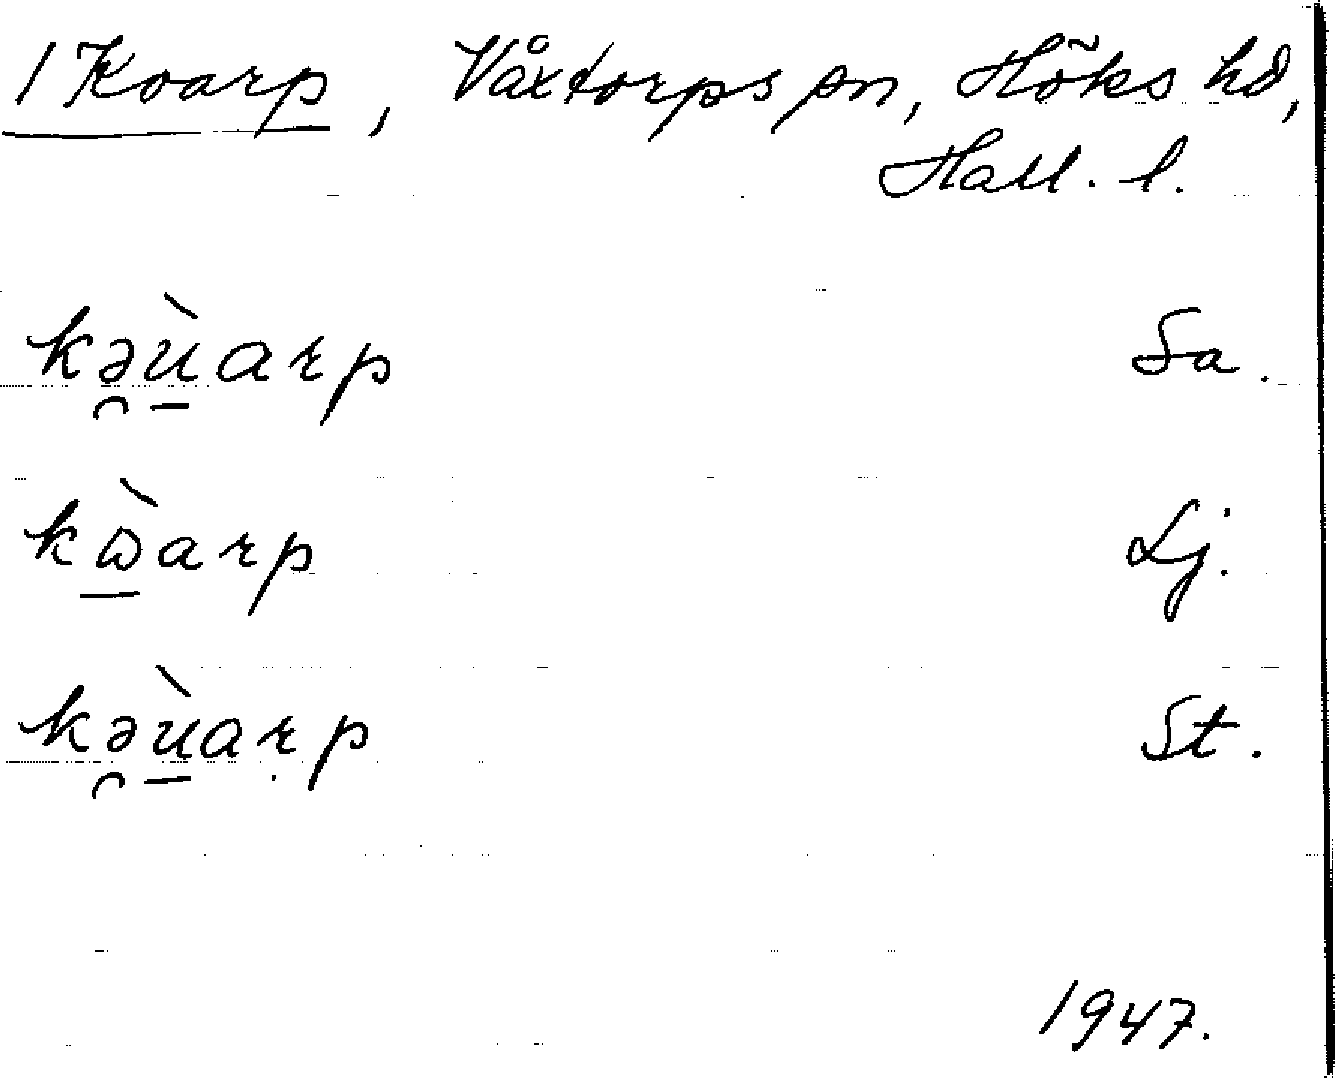 1 Koarp, Våxtorps sn, Höks hd,
Hall. l.
kə̯ù̱arp Sa.
kɷ̱̀arp Lj.
kə̯ù̱aṛp St.
1947.